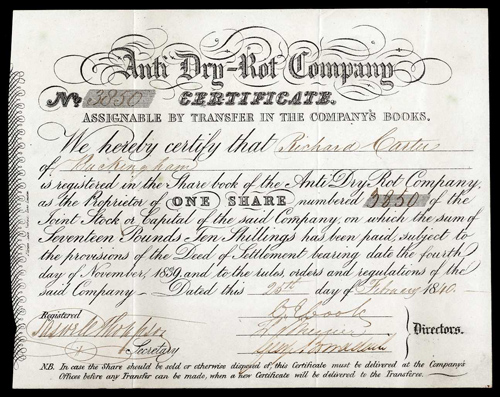 Anti Dry-Rot Company
No. 3850 CERTIFICATE.
ASSIGNABLE BY TRANSFER IN THE COMPANY'S BOOKS.
We hereby certify that Richard Carter
of Buckingham
is registered in the Share book of the Anti Dry Rot Company,
as the Proprietor of ONE SHARE numbered 3850 of the
Joint Stock or Capital of the said Company, on which the sum of
Seventeen Pounds Ten Shillings has been paid, subject to
the provisions of the Deed of Settlement bearing date the fourth
day of November, 1839, and to the rules orders and regulations of the
said Company — Dated this 20th day of February 1840.
Registered
Directors.
Secretary
N.B. In case the Share should be sold or otherwise disposed of, this Certificate must be delivered at the Company's
Offices before any Transfer can be made, when a new Certificate will be delivered to the Transferee.